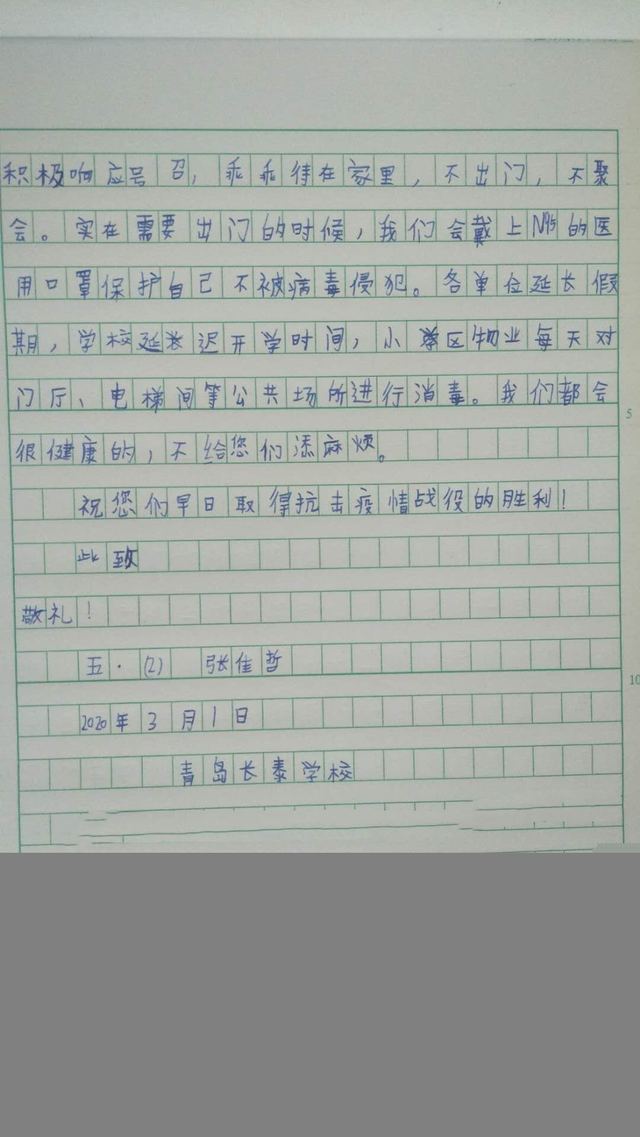 积极响应号召，乖乖待在家里，不出门，不聚
会。实在需要出门的时候，我们会戴上N95的医
用口罩保护自己不被病毒侵犯。各单位延长假
期，学校延长迟开学时间，小学区物业每天对
门厅、电梯间等公共场所进行消毒。我们都会
很健康的，不给您们添麻烦。
祝您们早日取得抗击疫情战役的胜利！
此致
敬礼！
五·(2) 张佳哲
2020年3月1日
青岛长泰学校
5
10